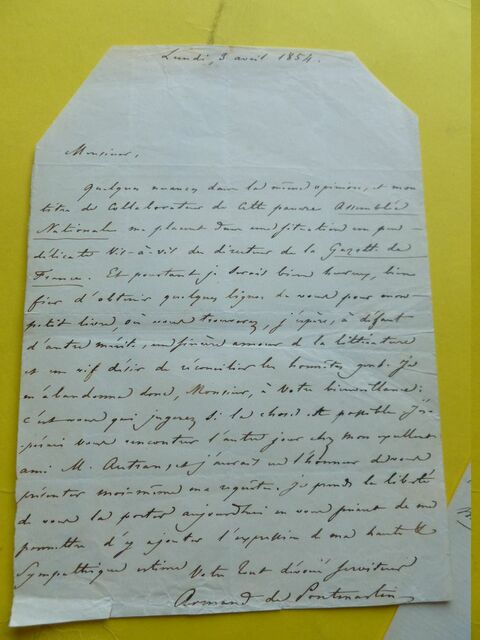 Lundi, 3 avril 1854.
Monsieur,
Quelques nuances dans la même opinion, et mon
titre de Collaborateur de cette pauvre Assemblée
Nationale me placent dans une situation un peu
délicate vis-à-vis du directeur de la Gazette de
France. Et pourtant je serais bien heureux, bien
fier d'obtenir quelques lignes de vous pour mon
petit livre, où vous trouverez, j'espère, à défaut
d'autre mérite, un sincère amour de la littérature
et un vif désir de réconcilier les honnêtes gens. Je
m'abandonne donc, Monsieur, à votre bienveillance:
c'est vous qui jugerez si la chose est possible. J'es-
pérais vous rencontrer l'autre jour chez mon excellent
ami M. Autran, et j'aurais eu l'honneur de vous
présenter moi-même ma requête. Je prends la liberté
de vous la porter aujourd'hui en vous priant de me
permettre d'y ajouter l'expression de ma haute &
Sympathique estime
Votre tout dévoué serviteur
Armand de Pontmartin